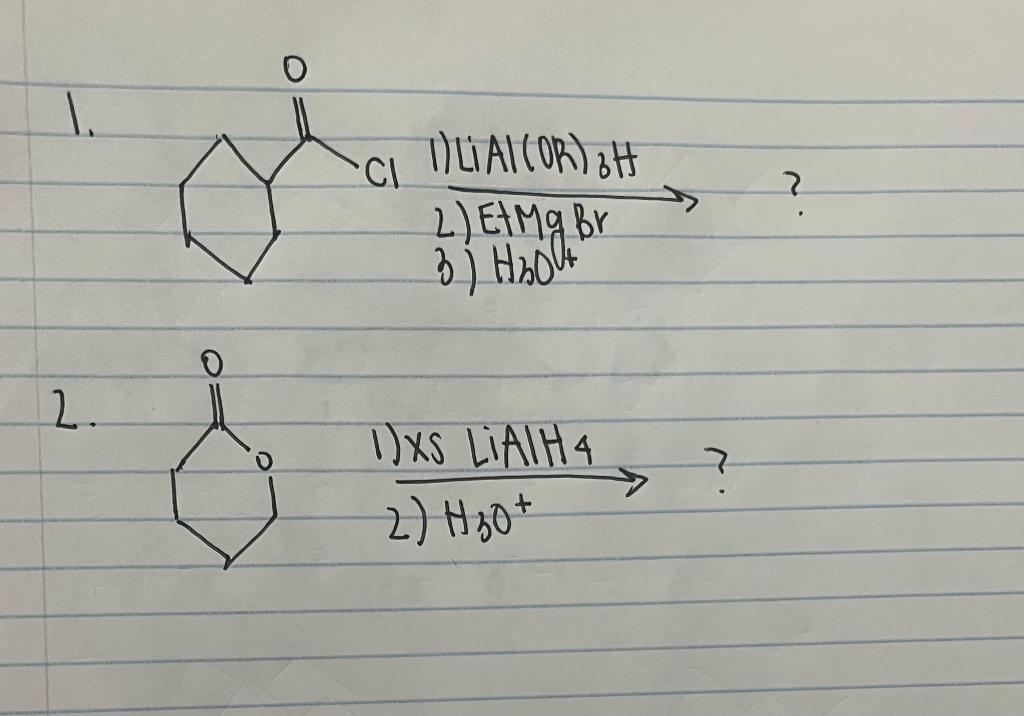 1.
O
Cl
1) LiAl(OR)3H
2) EtMgBr
3) H3O+
?
2.
O
O
1) xs LiAlH4
2) H3O+
?